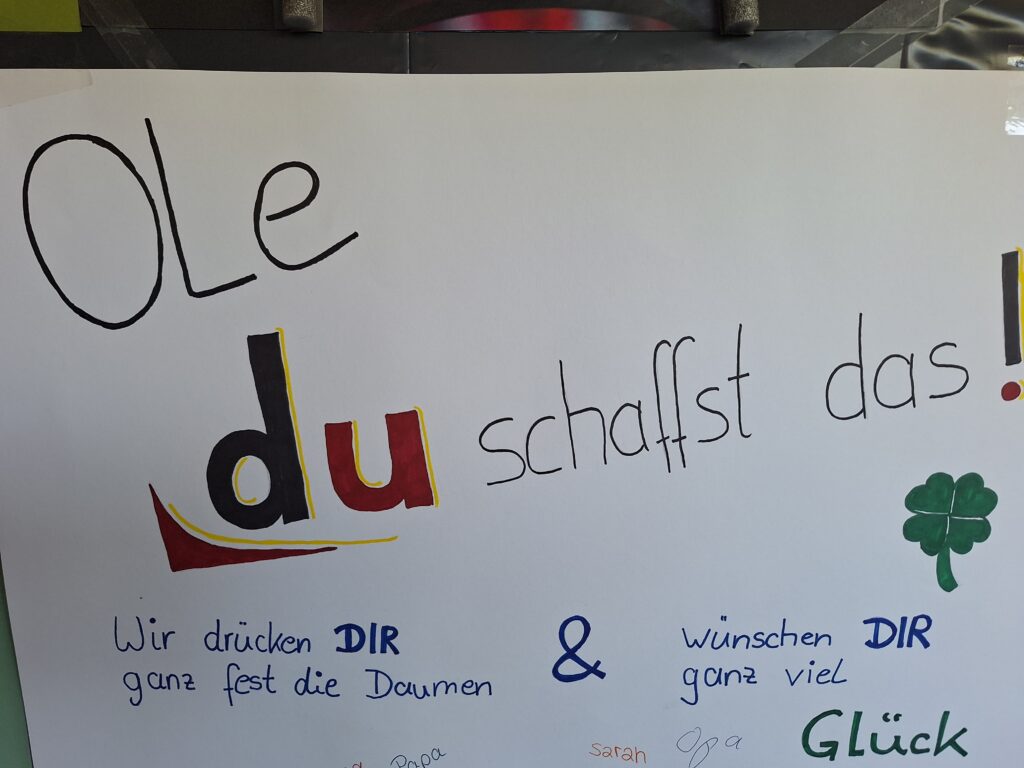 OLe
du schaffst das!
Wir drücken DIR
ganz fest die Daumen
&
wünschen DIR
ganz viel
Glück
Papa
sarah Opa